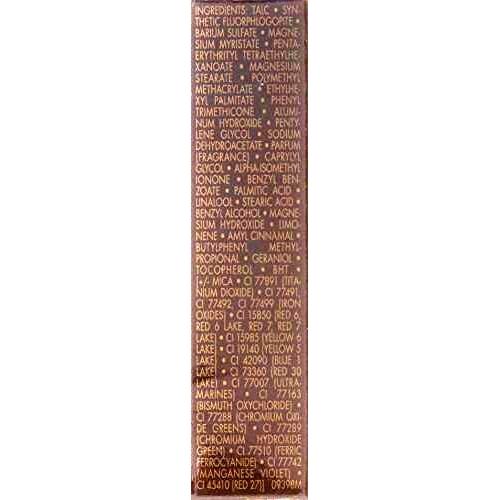 INGREDIENTS TALC • SYN-
THETIC FLUORPHLOGOPITE •
BARIUM SULFATE • MAGNE-
SIUM MYRISTATE • PENTA-
ERYTHRITYL TETRAETHYLHE-
XANOATE • MAGNESIUM
STEARATE • POLYMETHYL
METHACRYLATE • ETHYLHE-
XYL PALMITATE • PHENYL
TRIMETHICONE • ALUMI-
NUM HYDROXIDE • PENTY-
LENE GLYCOL • SODIUM
DEHYDROACETATE • PARFUM
(FRAGRANCE) • CAPRYLYL
GLYCOL • ALPHA-ISOMETHYL
IONONE • BENZYL BEN-
ZOATE • PALMITIC ACID •
LINALOOL • STEARIC ACID •
BENZYL ALCOHOL • MAGNE-
SIUM HYDROXIDE • LIMO-
NENE • AMYL CINNAMAL •
BUTYLPHENYL METHYL-
PROPIONAL • GERANIOL •
TOCOPHEROL • BHT •
[+/- MICA • CI 77891 (TITA-
NIUM DIOXIDE) • CI 77491,
CI 77492, CI 77499 (IRON
OXIDES) • CI 15850 (RED 6,
RED 6 LAKE, RED 7, RED 7
LAKE) • CI 15985 (YELLOW 6
LAKE) • CI 19140 (YELLOW 5
LAKE) • CI 42090 (BLUE 1
LAKE) • CI 73360 (RED 30
LAKE) • CI 77007 (ULTRA-
MARINES) • CI 77163
(BISMUTH OXYCHLORIDE) •
CI 77288 (CHROMIUM OXI-
DE GREENS) • CI 77289
(CHROMIUM HYDROXIDE
GREEN) • CI 77510 (FERRIC
FERROCYANIDE) • CI 77742
(MANGANESE VIOLET) •
CI 45410 (RED 27)] 09398M